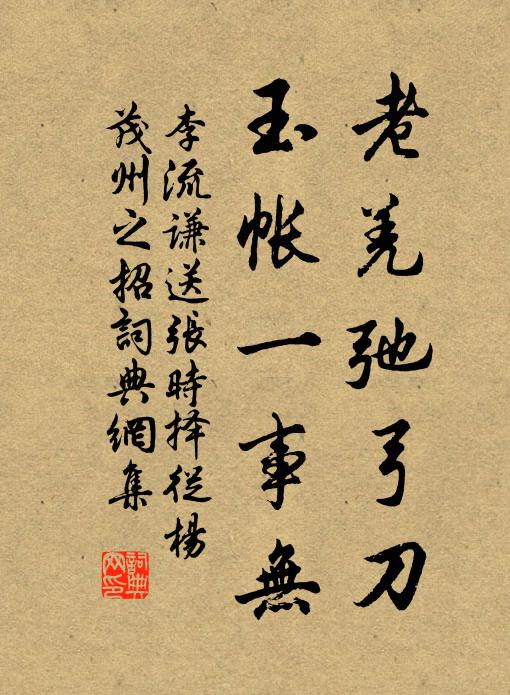 老羌弛弓刀
玉帐一事無
李流谦送張時择從楊
茂州之招詞典網集
詞典網印